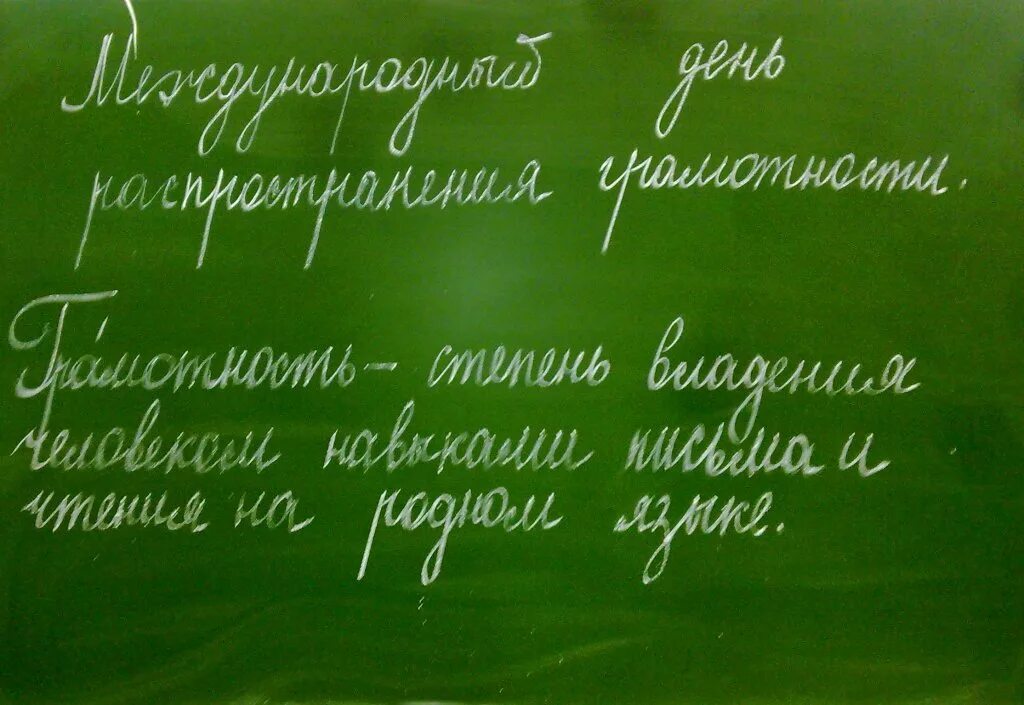 Международный день
распространения грамотности.
Гра́мотность – степень владения
человеком навыками письма и
чтения на родном языке.